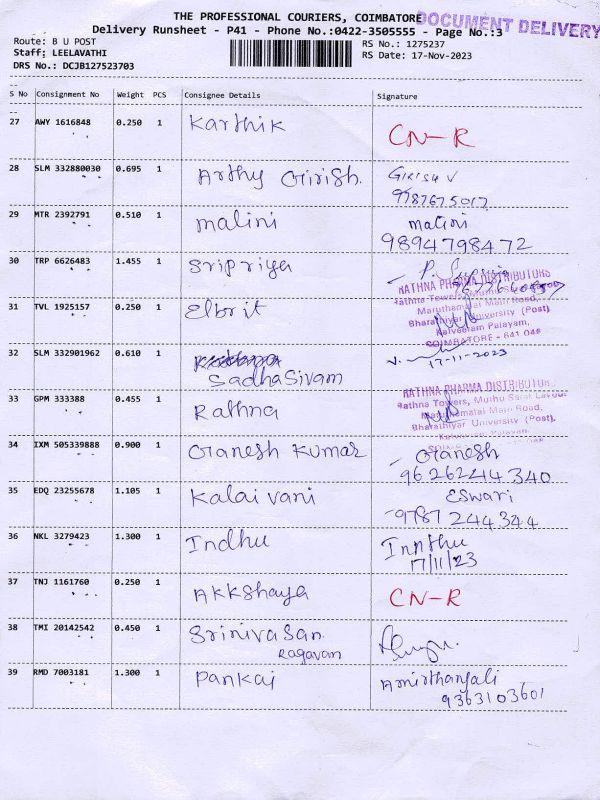 THE PROFESSIONAL COURIERS, COIMBATORE
DOCUMENT DELIVERY
Delivery Runsheet - P41 - Phone No.:0422-3505555 - Page No.:3
Route: B U POST
RS No.: 1275237
Staff; LEELAVATHI
RS Date: 17-Nov-2023
DRS No.: DCJB127523703
S No Consignment No Weight PCS Consignee Details Signature
27 AWY 1616848 0.250 1 Karthik CN-R
28 SLM 332880030 0.695 1 Arthy Girish. GIRISH V
9787675017
29 MTR 2392791 0.510 1 malini Malini
9894798472
30 TRP 6626483 1.455 1 Sripriya
RATHNA PHARMA DISTRIBUTORS
Maruthamalai Main Road,
31 TVL 1925157 0.250 1 Elbrit
Bharathiyar University (Post),
Kalveeram Palayam,
COIMBATORE - 641 046
32 SLM 332901962 0.610 1
SadhaSivam 17-11-2023
33 GPM 333388 0.455 1 Rathna
RATHNA PHARMA DISTRIBUTORS
Rathna Towers, Muthu
Main Road,
Bharathiyar University (Post),
34 IXM 505339888 0.900 1 Ganesh Kumar Ganesh
9626244340
35 EDQ 23255678 1.105 1 Kalaivani Eswari
9787244344
36 NKL 3279423 1.300 1 Indhu Innthu
17/11/23
37 TNJ 1161760 0.250 1 Akkshaya CN-R
38 TMI 20142542 0.450 1 Srinivasan
Ragavan
39 RMD 7003181 1.300 1 Pankaj Amirthanjali
9363103601